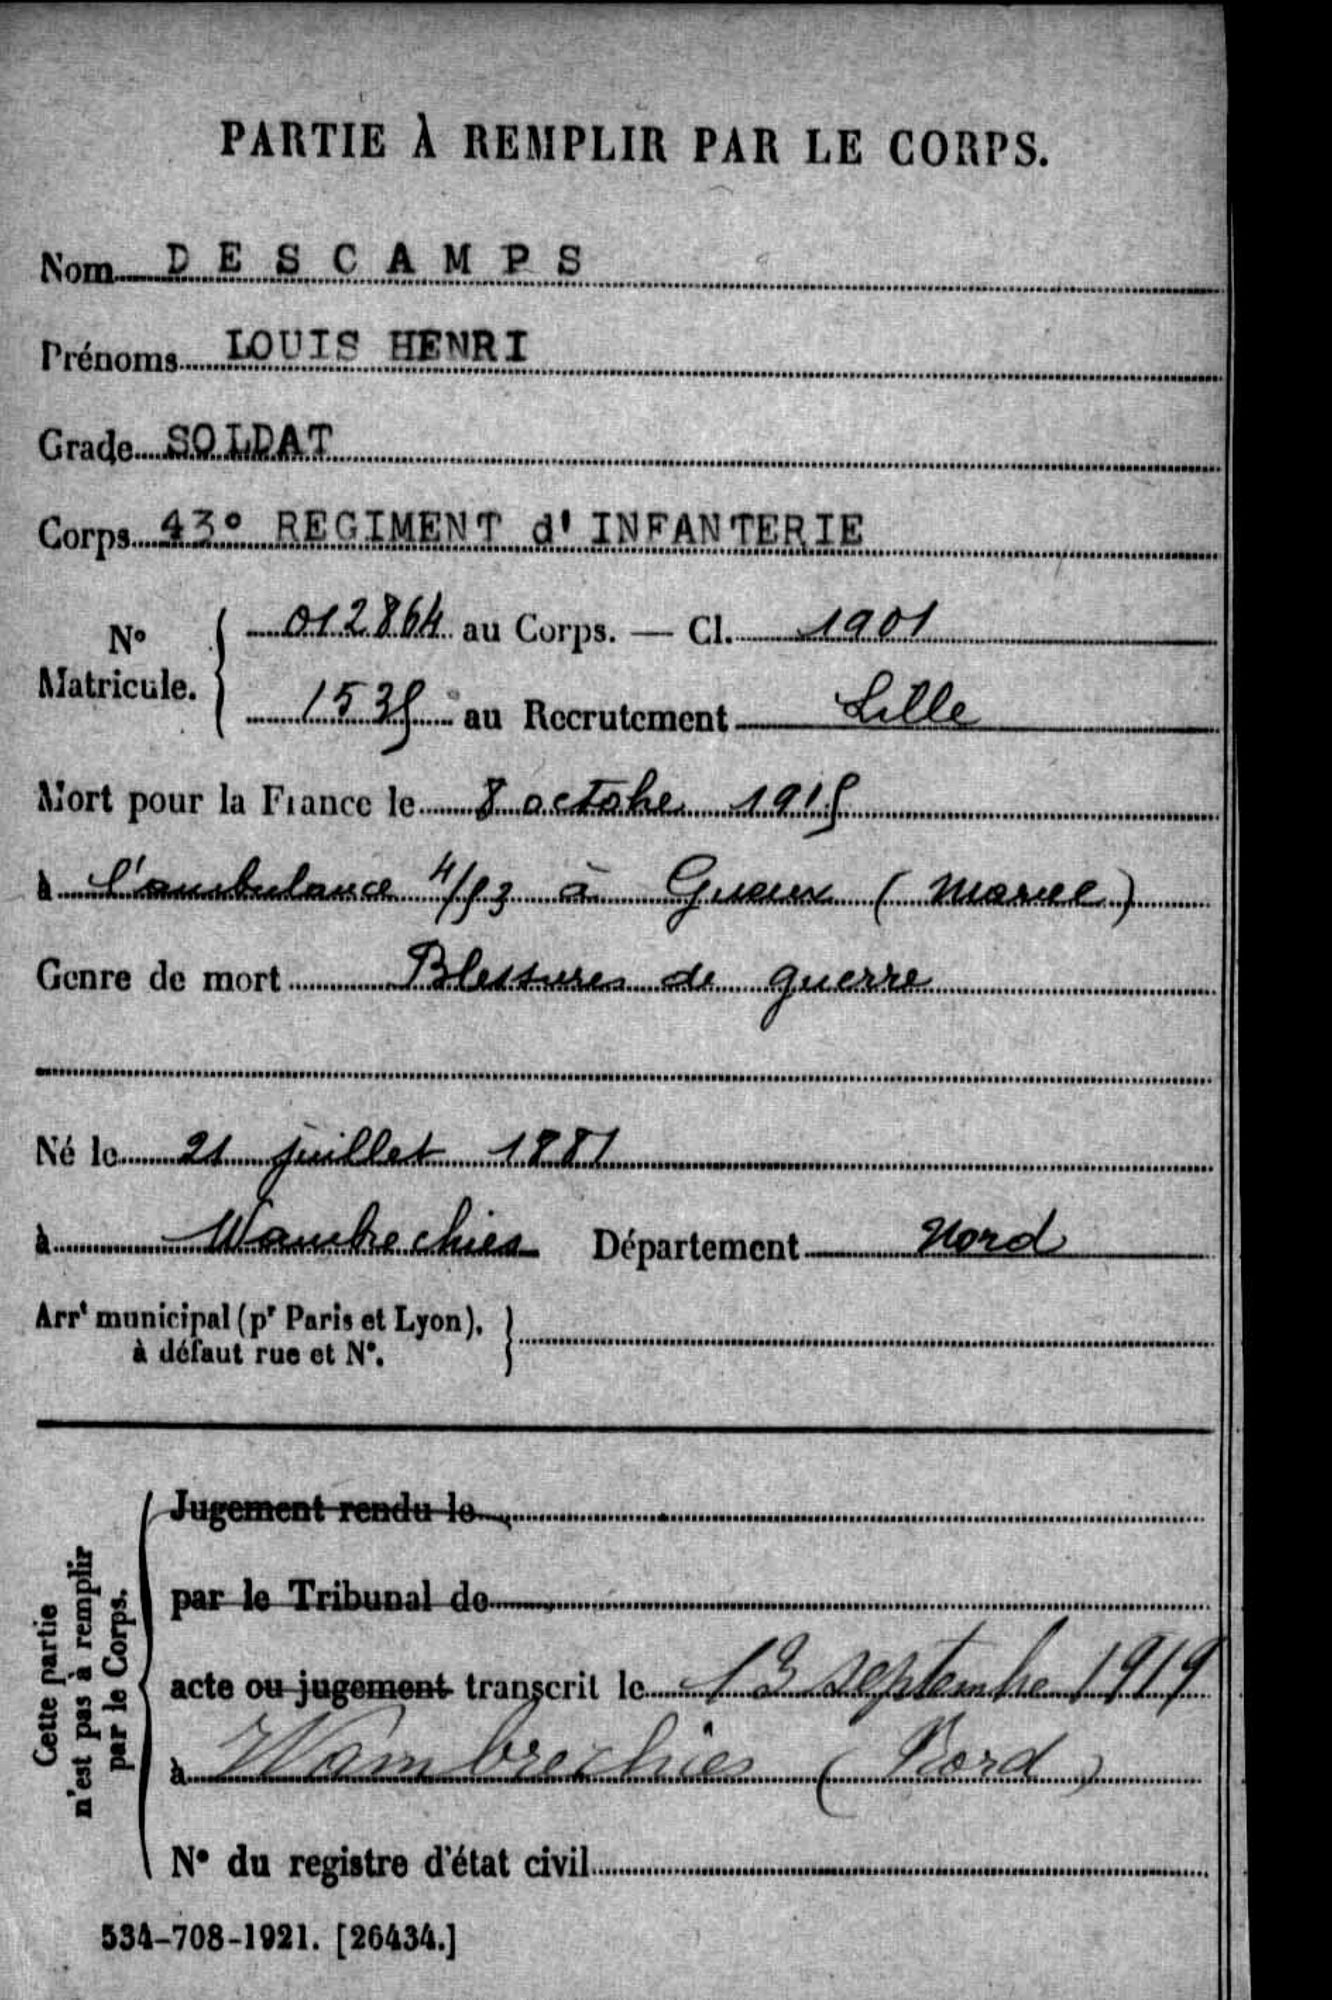 PARTIE À REMPLIR PAR LE CORPS.
Nom DESCAMPS
Prénoms LOUIS HENRI
Grade SOLDAT
Corps 43° REGIMENT d'INFANTERIE
N° Matricule. { 012864 au Corps. — Cl. 1901
1535 au Recrutement Lille
Mort pour la France le 8 octobre 1915
à l'ambulance 4/53 à Gueux (Marne)
Genre de mort Blessures de guerre
Né le 21 juillet 1881
à Wambrechies Département Nord
Arrt municipal (pr Paris et Lyon), à défaut rue et N°. }
Cette partie n'est pas à remplir par le Corps.
Jugement rendu le
par le Tribunal de
acte ou jugement transcrit le 13 septembre 1919
à Wambrechies (Nord)
N° du registre d'état civil
534-708-1921. [26434.]